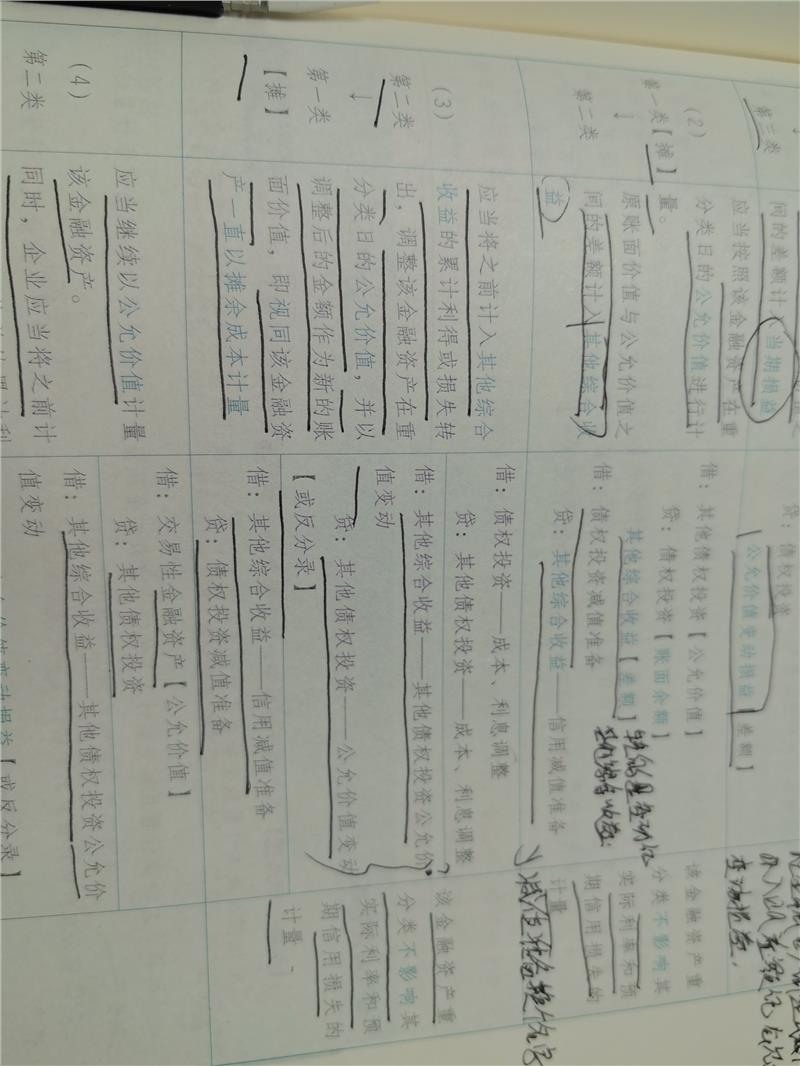 第三类
间的差额计入当期损益
贷：债权投资
公允价值变动损益【差额】
变动损益，
（2）
第一类【摊】
↓
第二类
应当按照该金融资产在重
分类日的公允价值进行计
量。
原账面价值与公允价值之
间的差额计入其他综合收
益
借：其他债权投资【公允价值】
贷：债权投资【账面余额】
其他综合收益【差额】
借：债权投资减值准备
贷：其他综合收益——信用减值准备
该金融资产重
分类不影响其
实际利率和预
期信用损失的
计量
（3）
第二类
↓
第一类
【摊】
应当将之前计入其他综合
收益的累计利得或损失转
出，调整该金融资产在重
分类日的公允价值，并以
调整后的金额作为新的账
面价值，即视同该金融资
产一直以摊余成本计量
借：债权投资——成本、利息调整
贷：其他债权投资——成本、利息调整
借：其他综合收益——其他债权投资公允价
值变动
贷：其他债权投资——公允价值变动
【或反分录】
借：其他综合收益——信用减值准备
贷：债权投资减值准备
该金融资产重
分类不影响其
实际利率和预
期信用损失的
计量
（4）
第二类
应当继续以公允价值计量
该金融资产。
同时，企业应当将之前计
借：交易性金融资产【公允价值】
贷：其他债权投资
借：其他综合收益——其他债权投资公允价
值变动